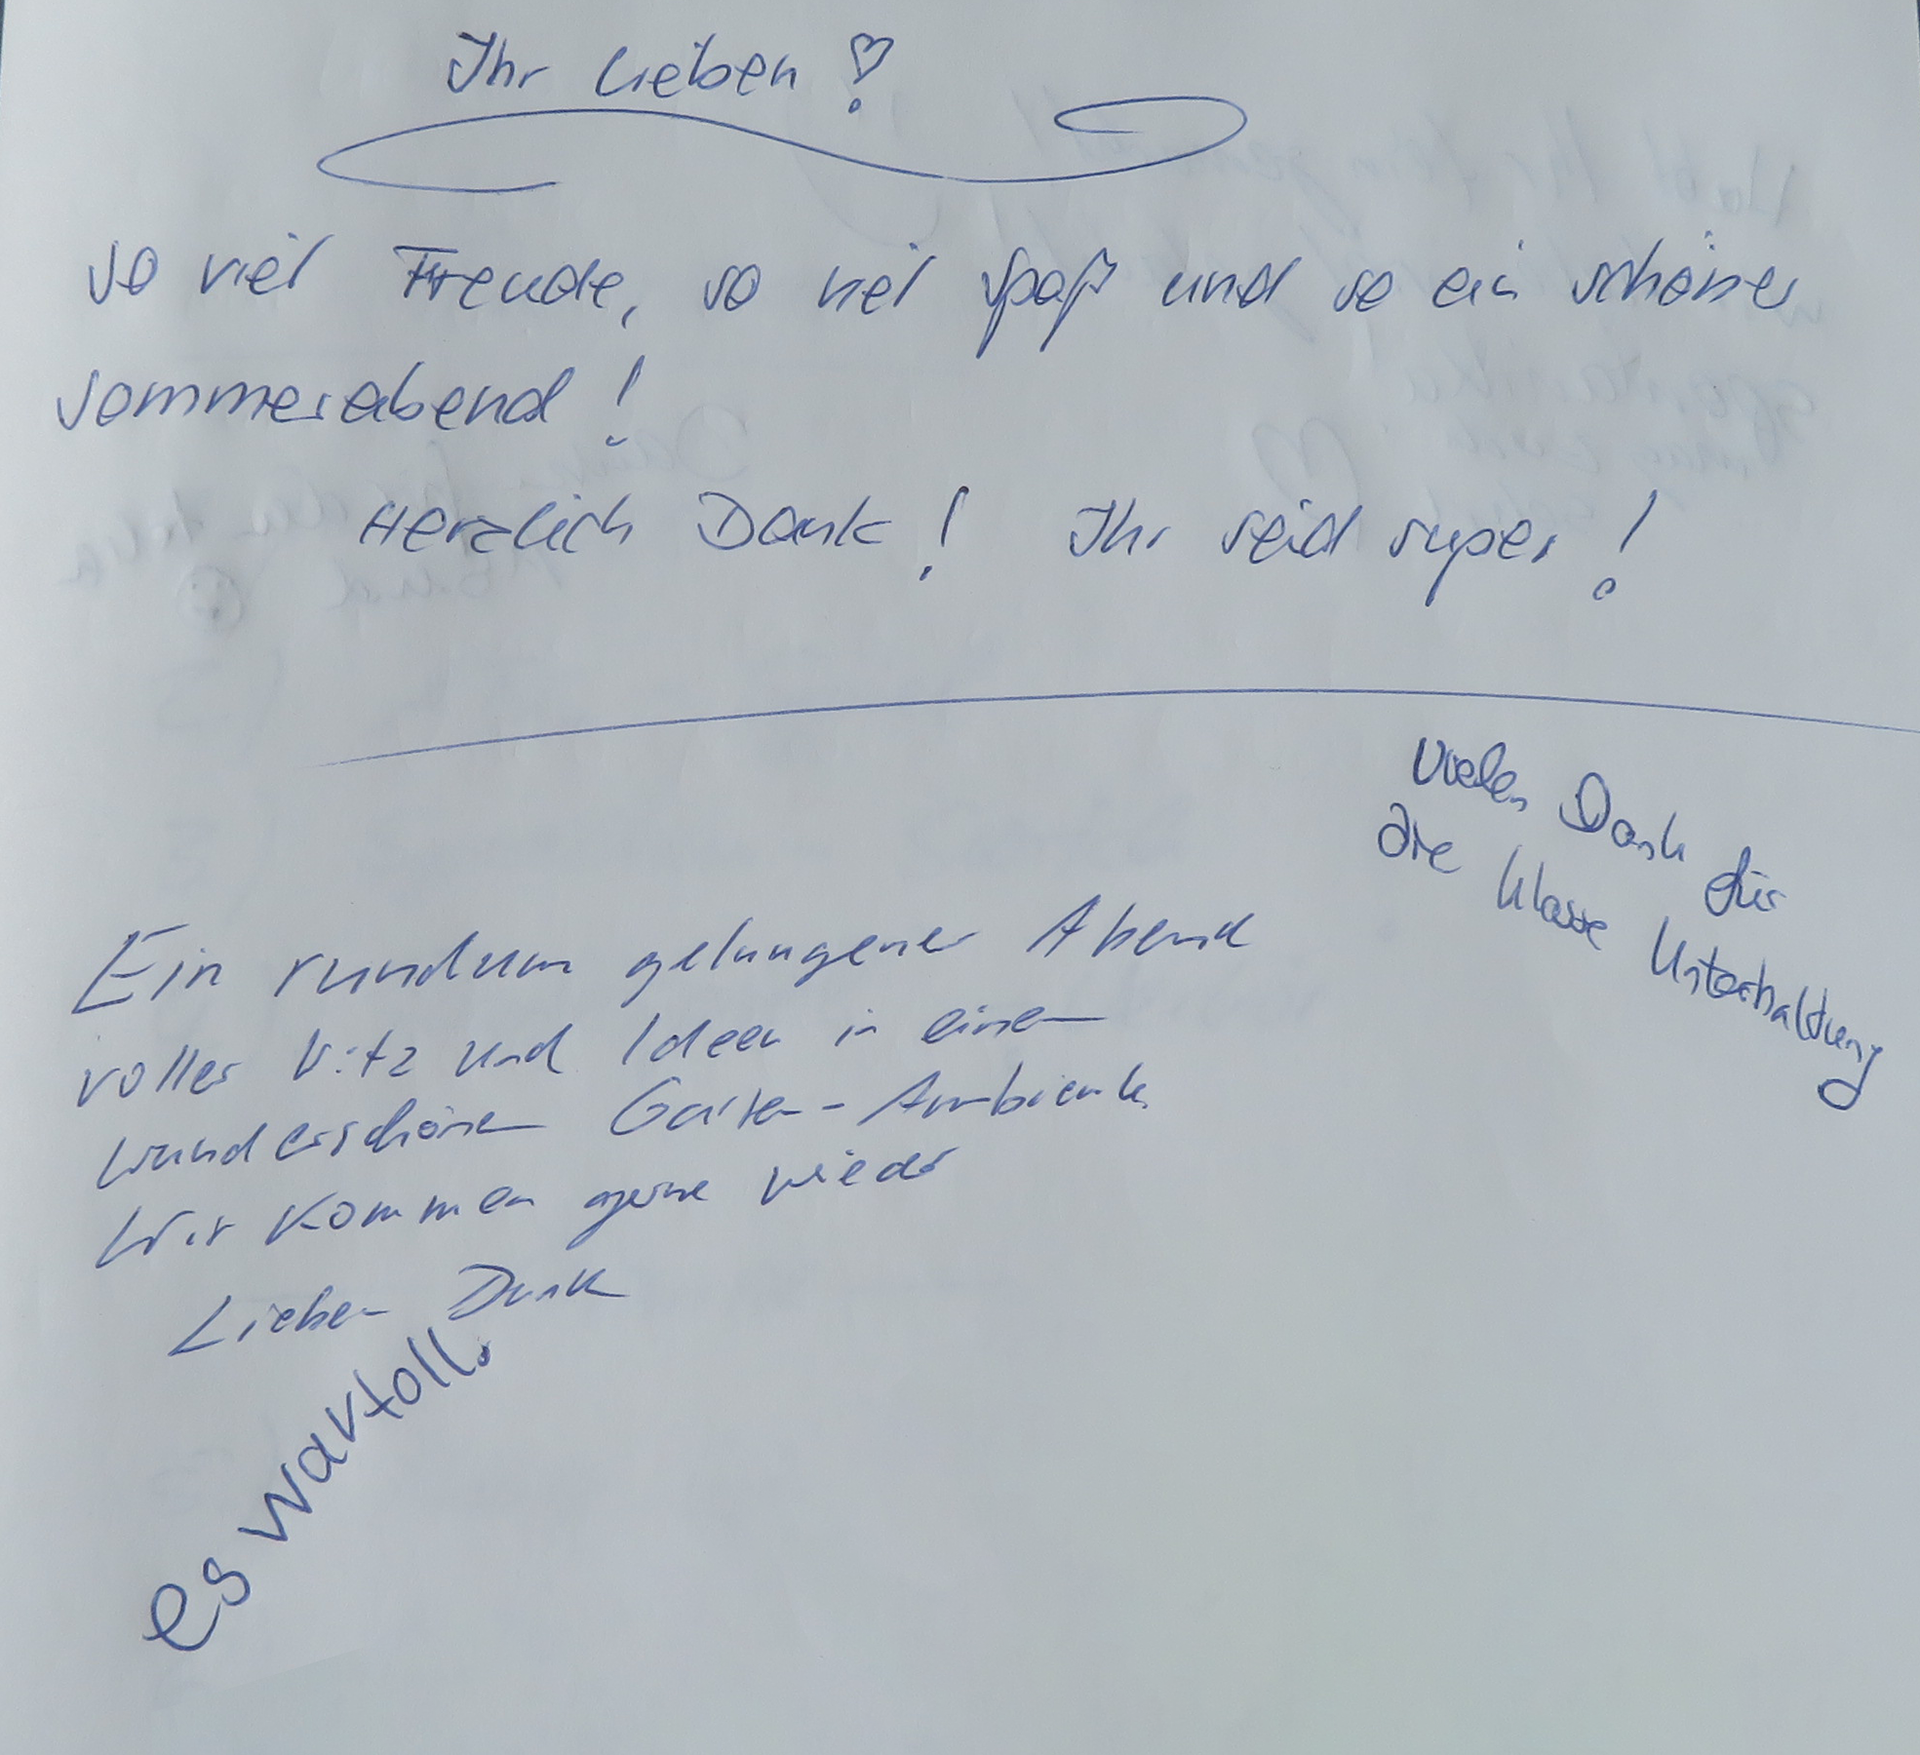 Ihr Lieben!
so viel Freude, so viel Spaß und so ein schöner
Sommerabend!
Herzlich Dank! Ihr seid super!
Vielen Dank für
die klasse Unterhaltung
Ein rundum gelungener Abend
voller Witz und Ideen in einem
wunderschönen Garten-Ambiente
Wir kommen gerne wieder
Lieben Dank
es war toll.